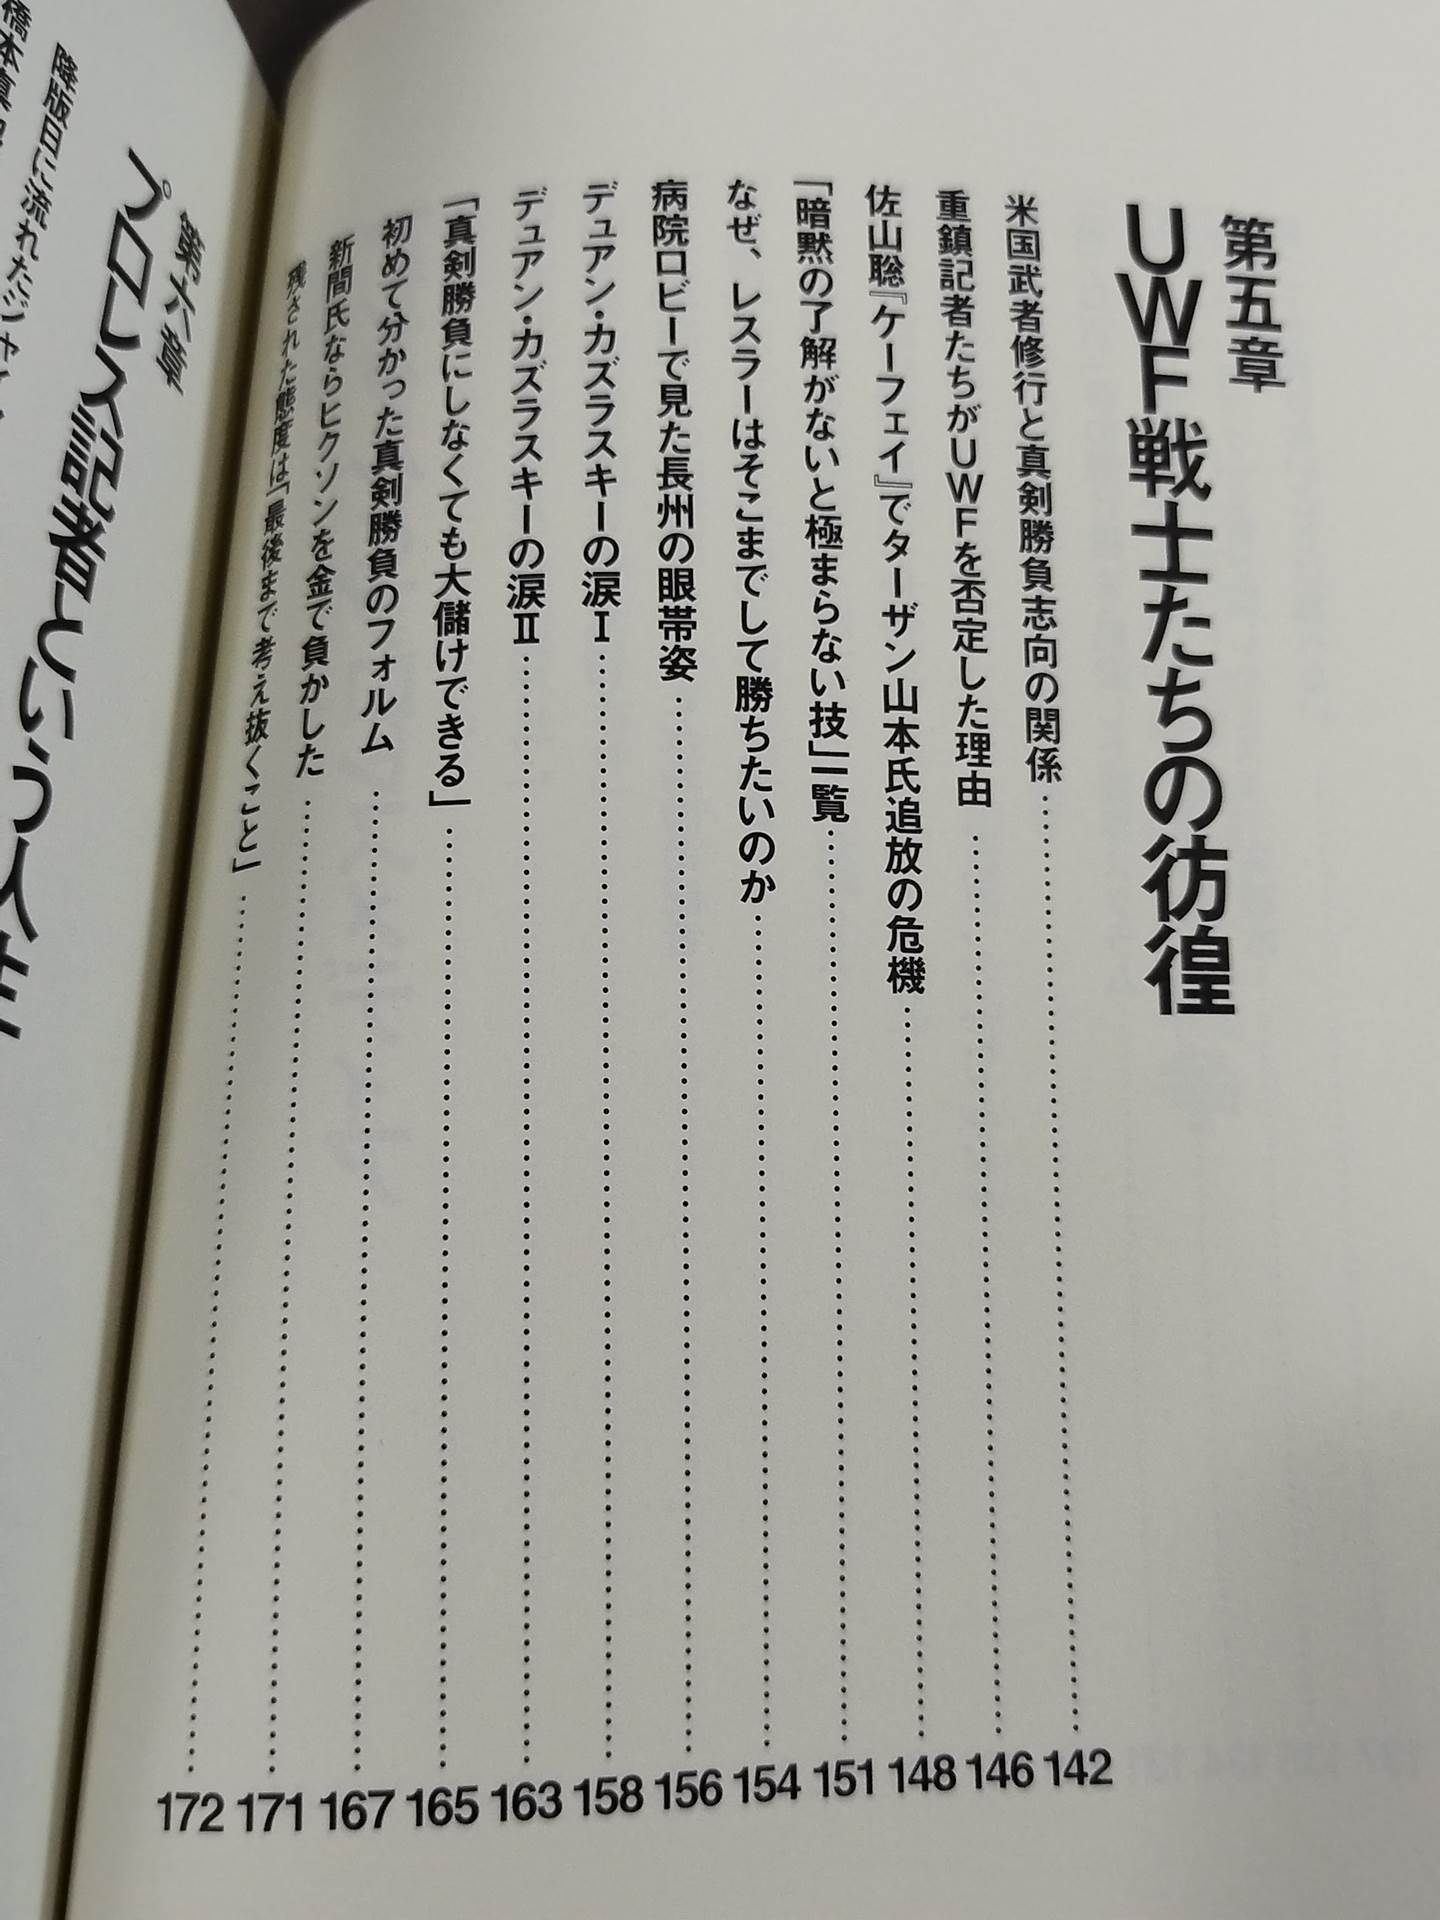 第五章
UWF戦士たちの彷徨
米国武者修行と真剣勝負志向の関係……142
重鎮記者たちがUWFを否定した理由……146
佐山聡『ケーフェイ』でターザン山本氏追放の危機……148
「暗黙の了解がないと極まらない技」一覧……151
なぜ、レスラーはそこまでして勝ちたいのか……154
病院ロビーで見た長州の眼帯姿……156
デュアン・カズラスキーの涙Ⅰ……158
デュアン・カズラスキーの涙Ⅱ……163
「真剣勝負にしなくても大儲けできる」……165
初めて分かった真剣勝負のフォルム……167
新間氏ならヒクソンを金で負かした……171
残された態度は「最後まで考え抜くこと」……172
第六章
プロレス記者という人生
降版日に流れたジャ
橋本真